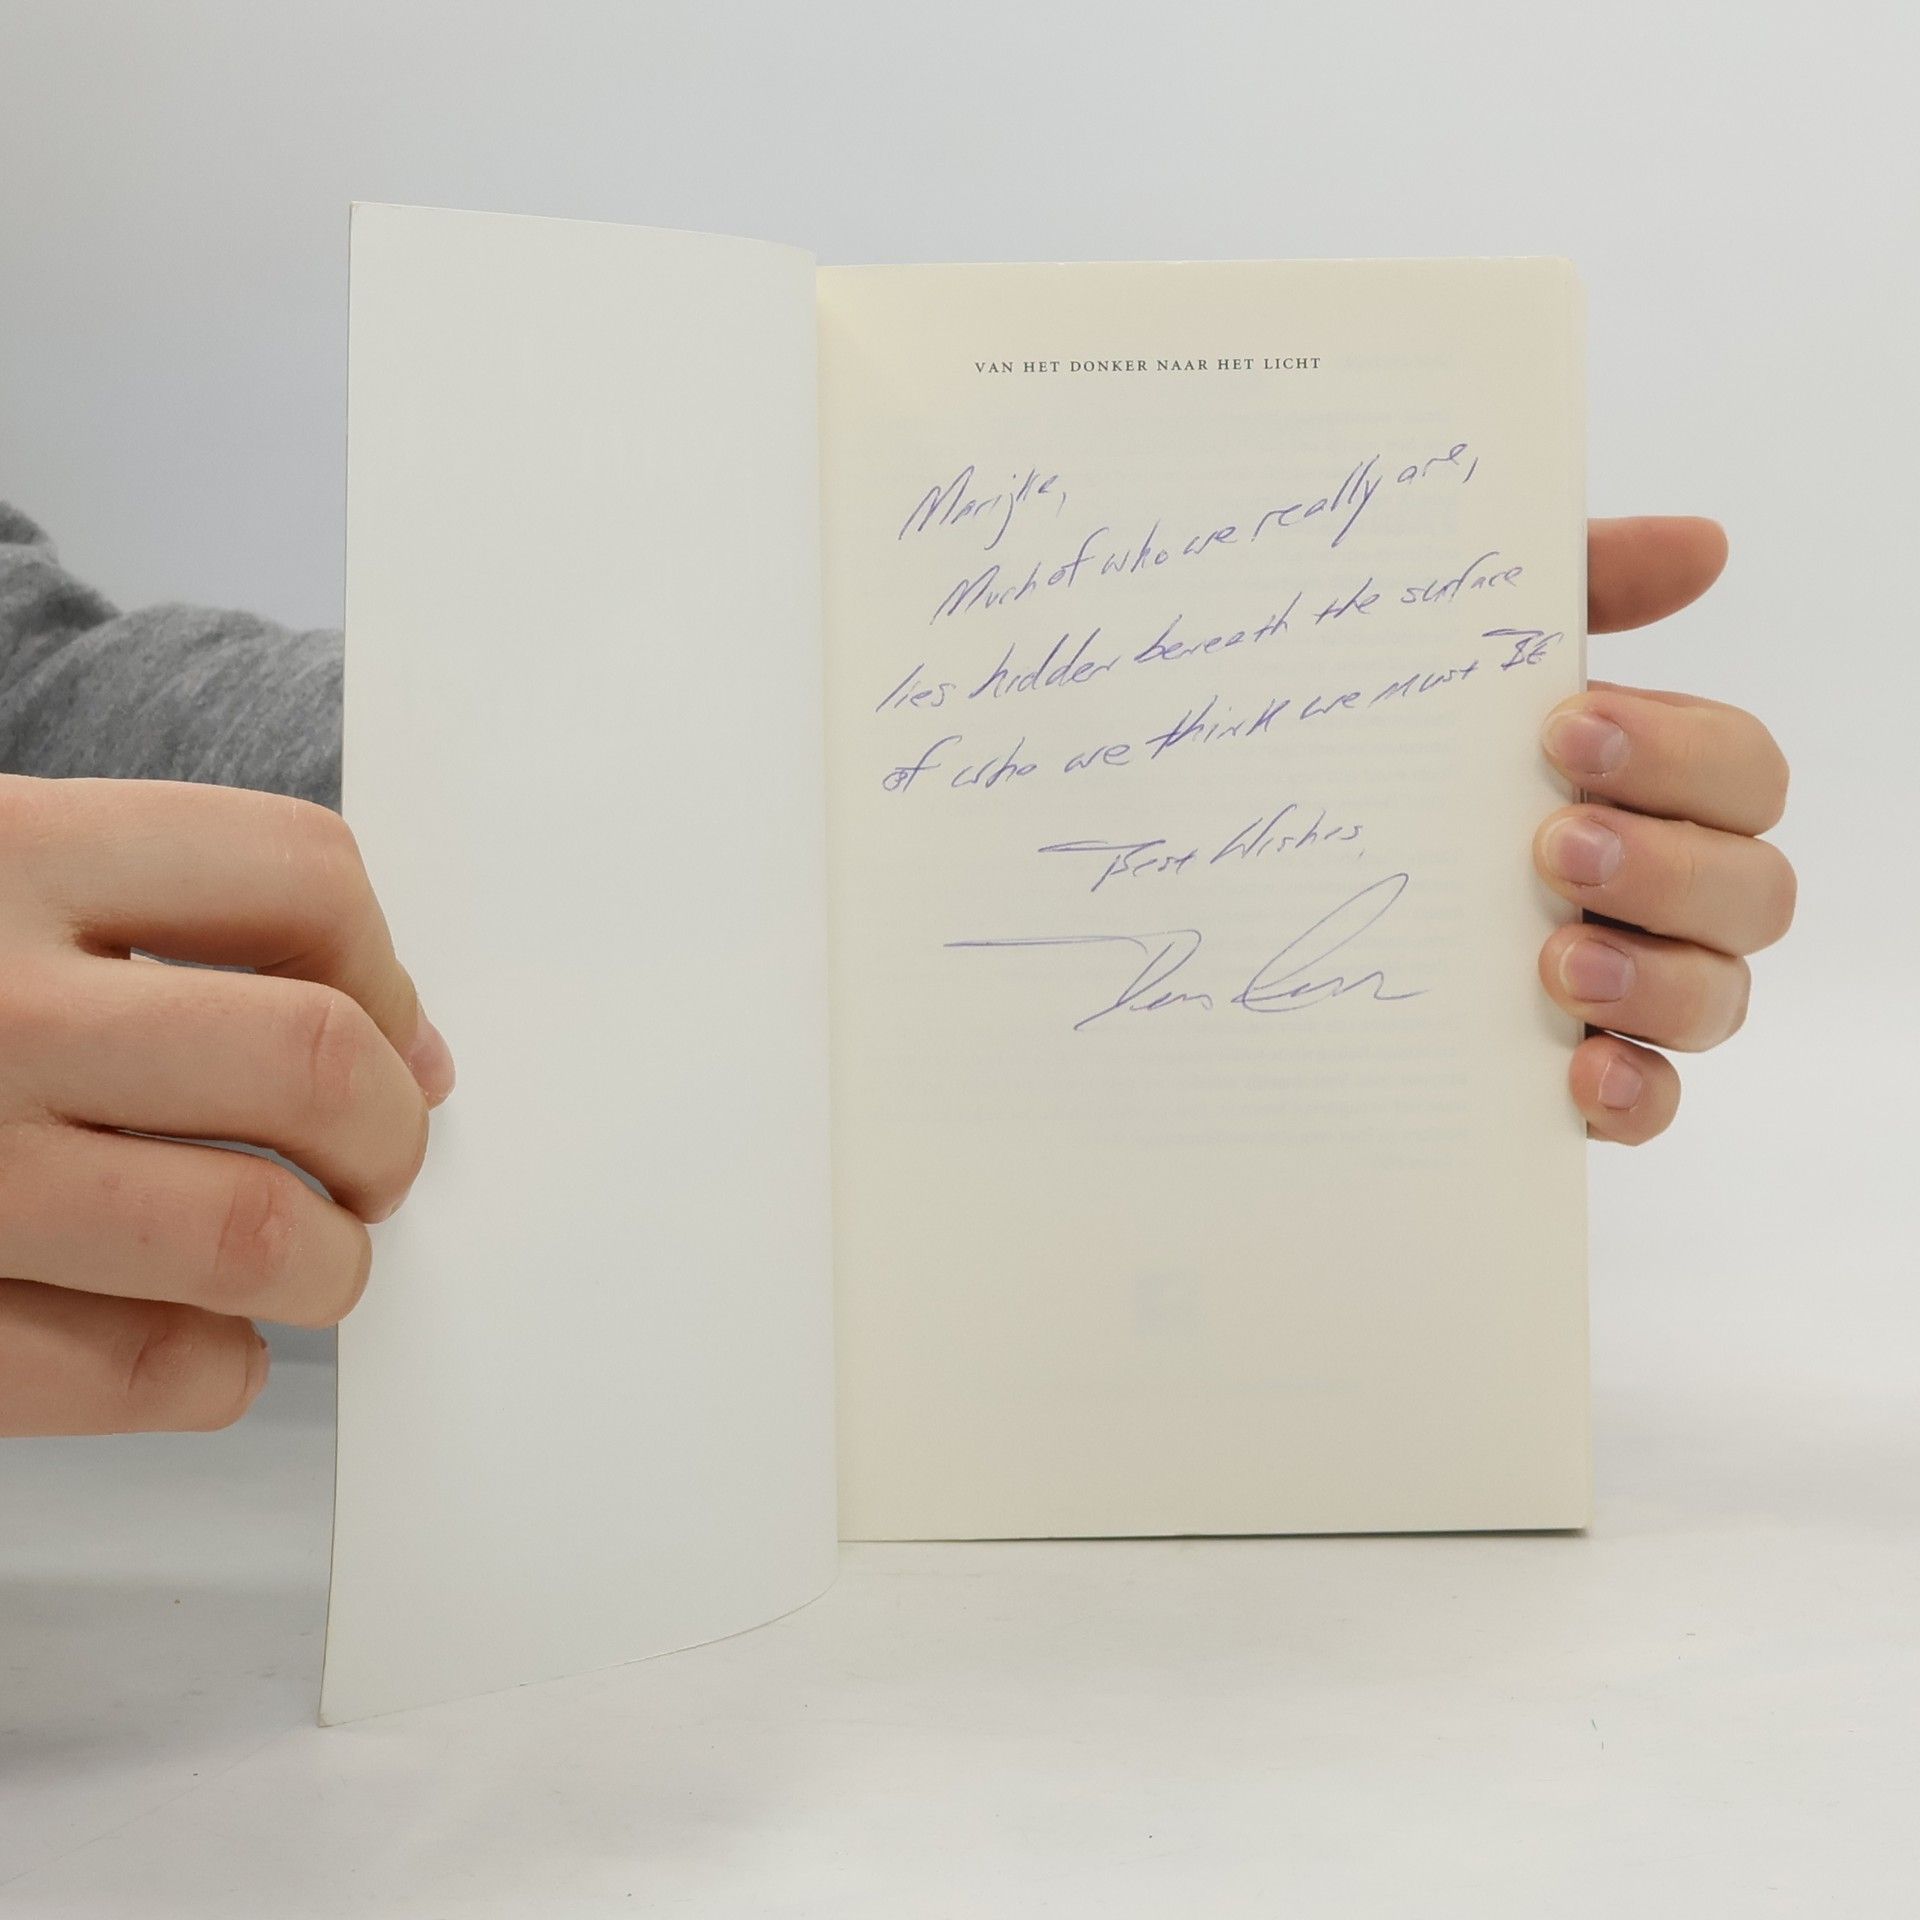 VAN HET DONKER NAAR HET LICHT
Marijke,
Much of who we really are,
lies hidden beneath the surface
of who we think we must BE
Best Wishes,